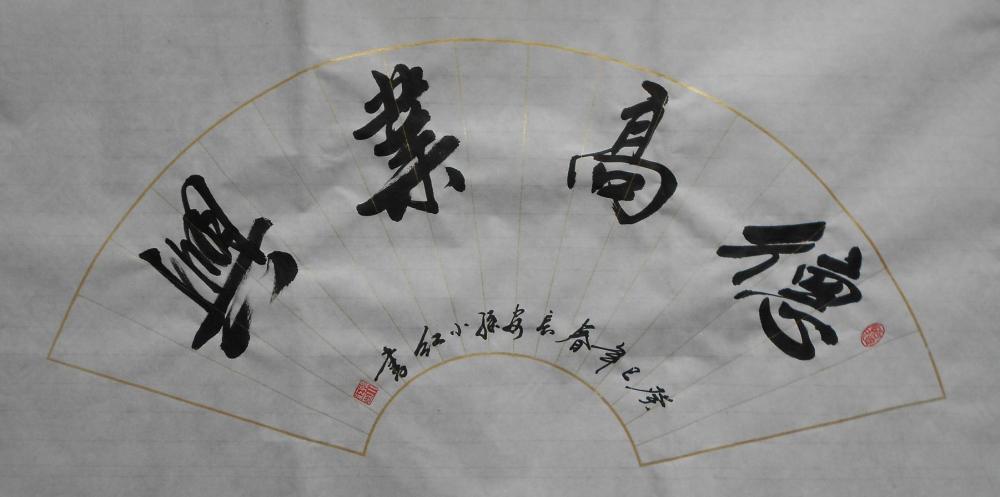 德高業興
癸巳年春長安孫小紅書